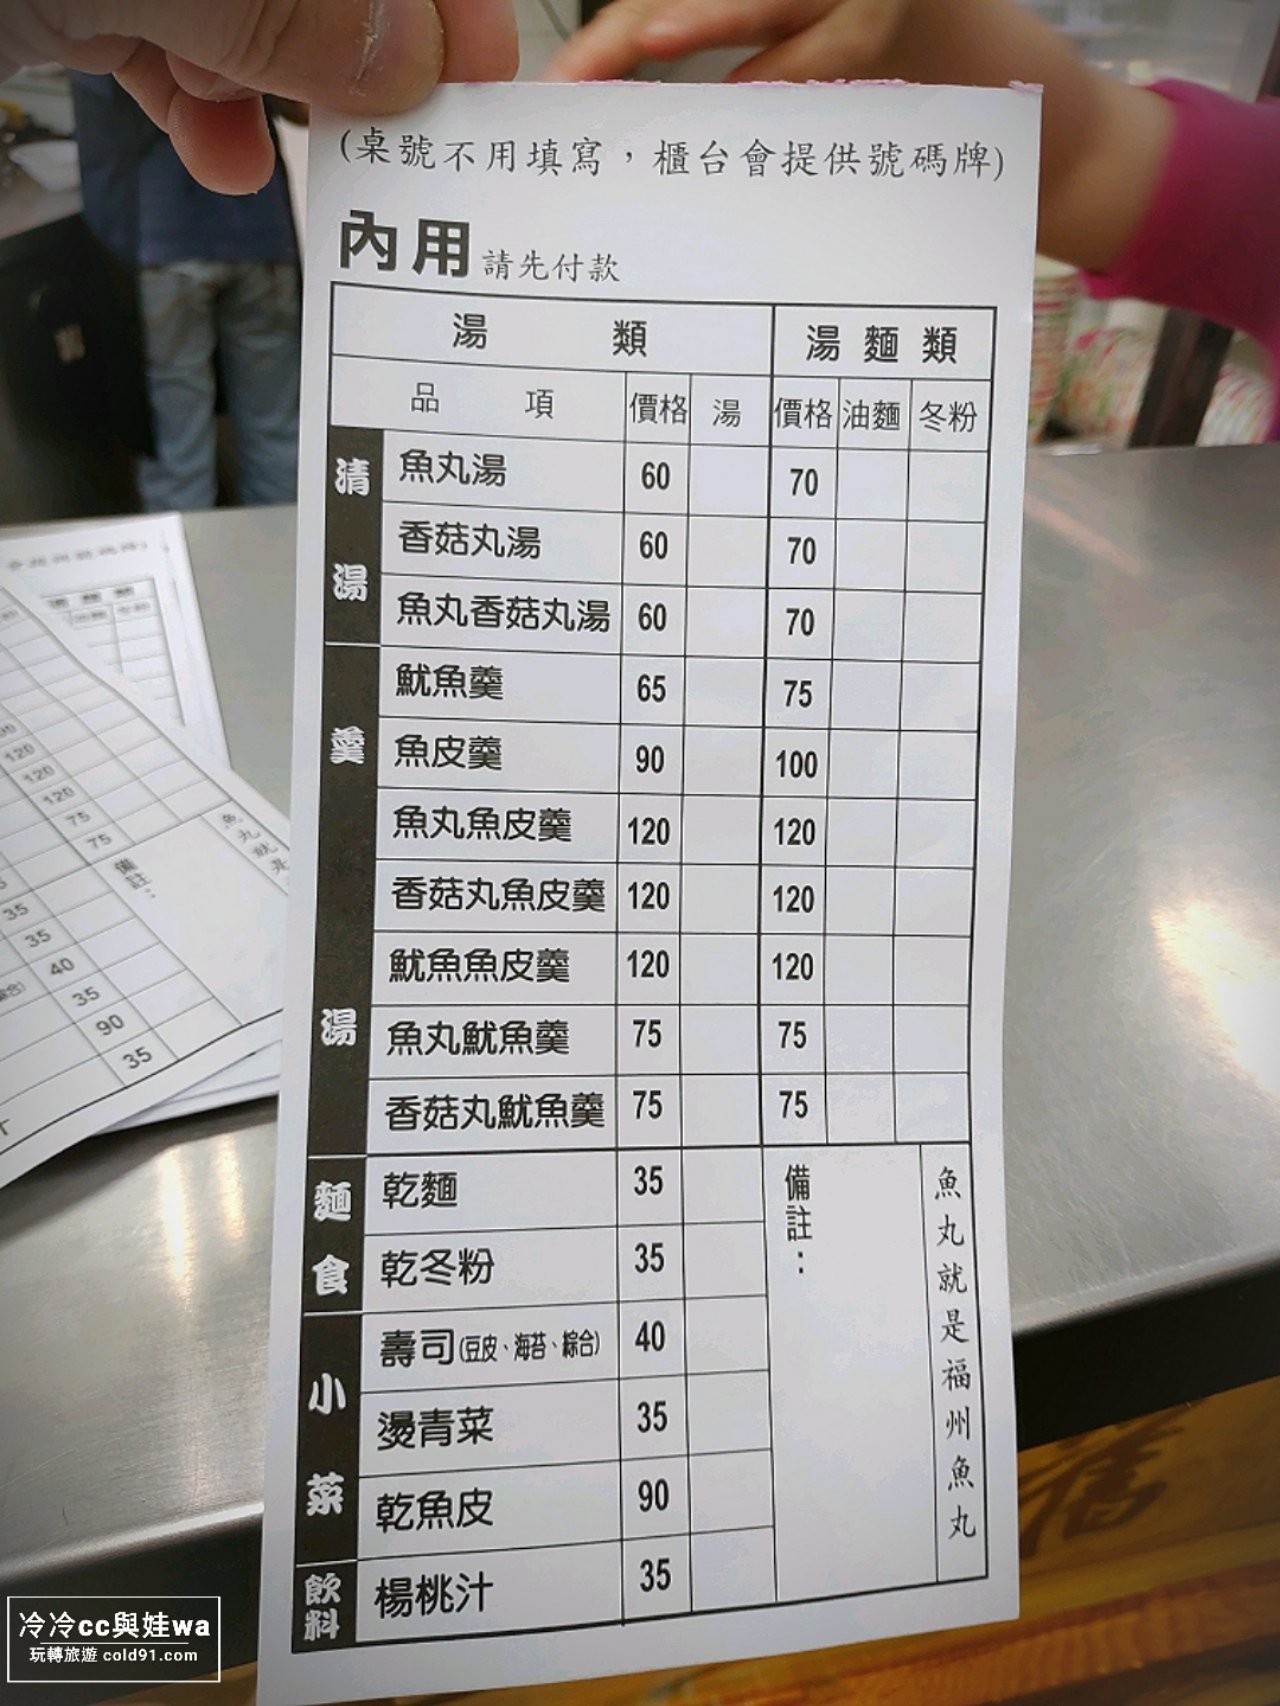 (桌號不用填寫，櫃台會提供號碼牌)
內用 請先付款
湯 類 湯麵類
品 項 價格 湯 價格 油麵 冬粉
清湯
魚丸湯 60 70
香菇丸湯 60 70
魚丸香菇丸湯 60 70
羹湯
魷魚羹 65 75
魚皮羹 90 100
魚丸魚皮羹 120 120
香菇丸魚皮羹 120 120
魷魚魚皮羹 120 120
魚丸魷魚羹 75 75
香菇丸魷魚羹 75 75
麵食
乾麵 35
乾冬粉 35
小菜
壽司(豆皮、海苔、綜合) 40
燙青菜 35
乾魚皮 90
飲料
楊桃汁 35
備註：
魚丸就是福州魚丸
120
120
120
75
75
35
35
40
35
90
35
備註：
魚丸就是
福
冷冷cc與娃wa
玩轉旅遊 cold91.com